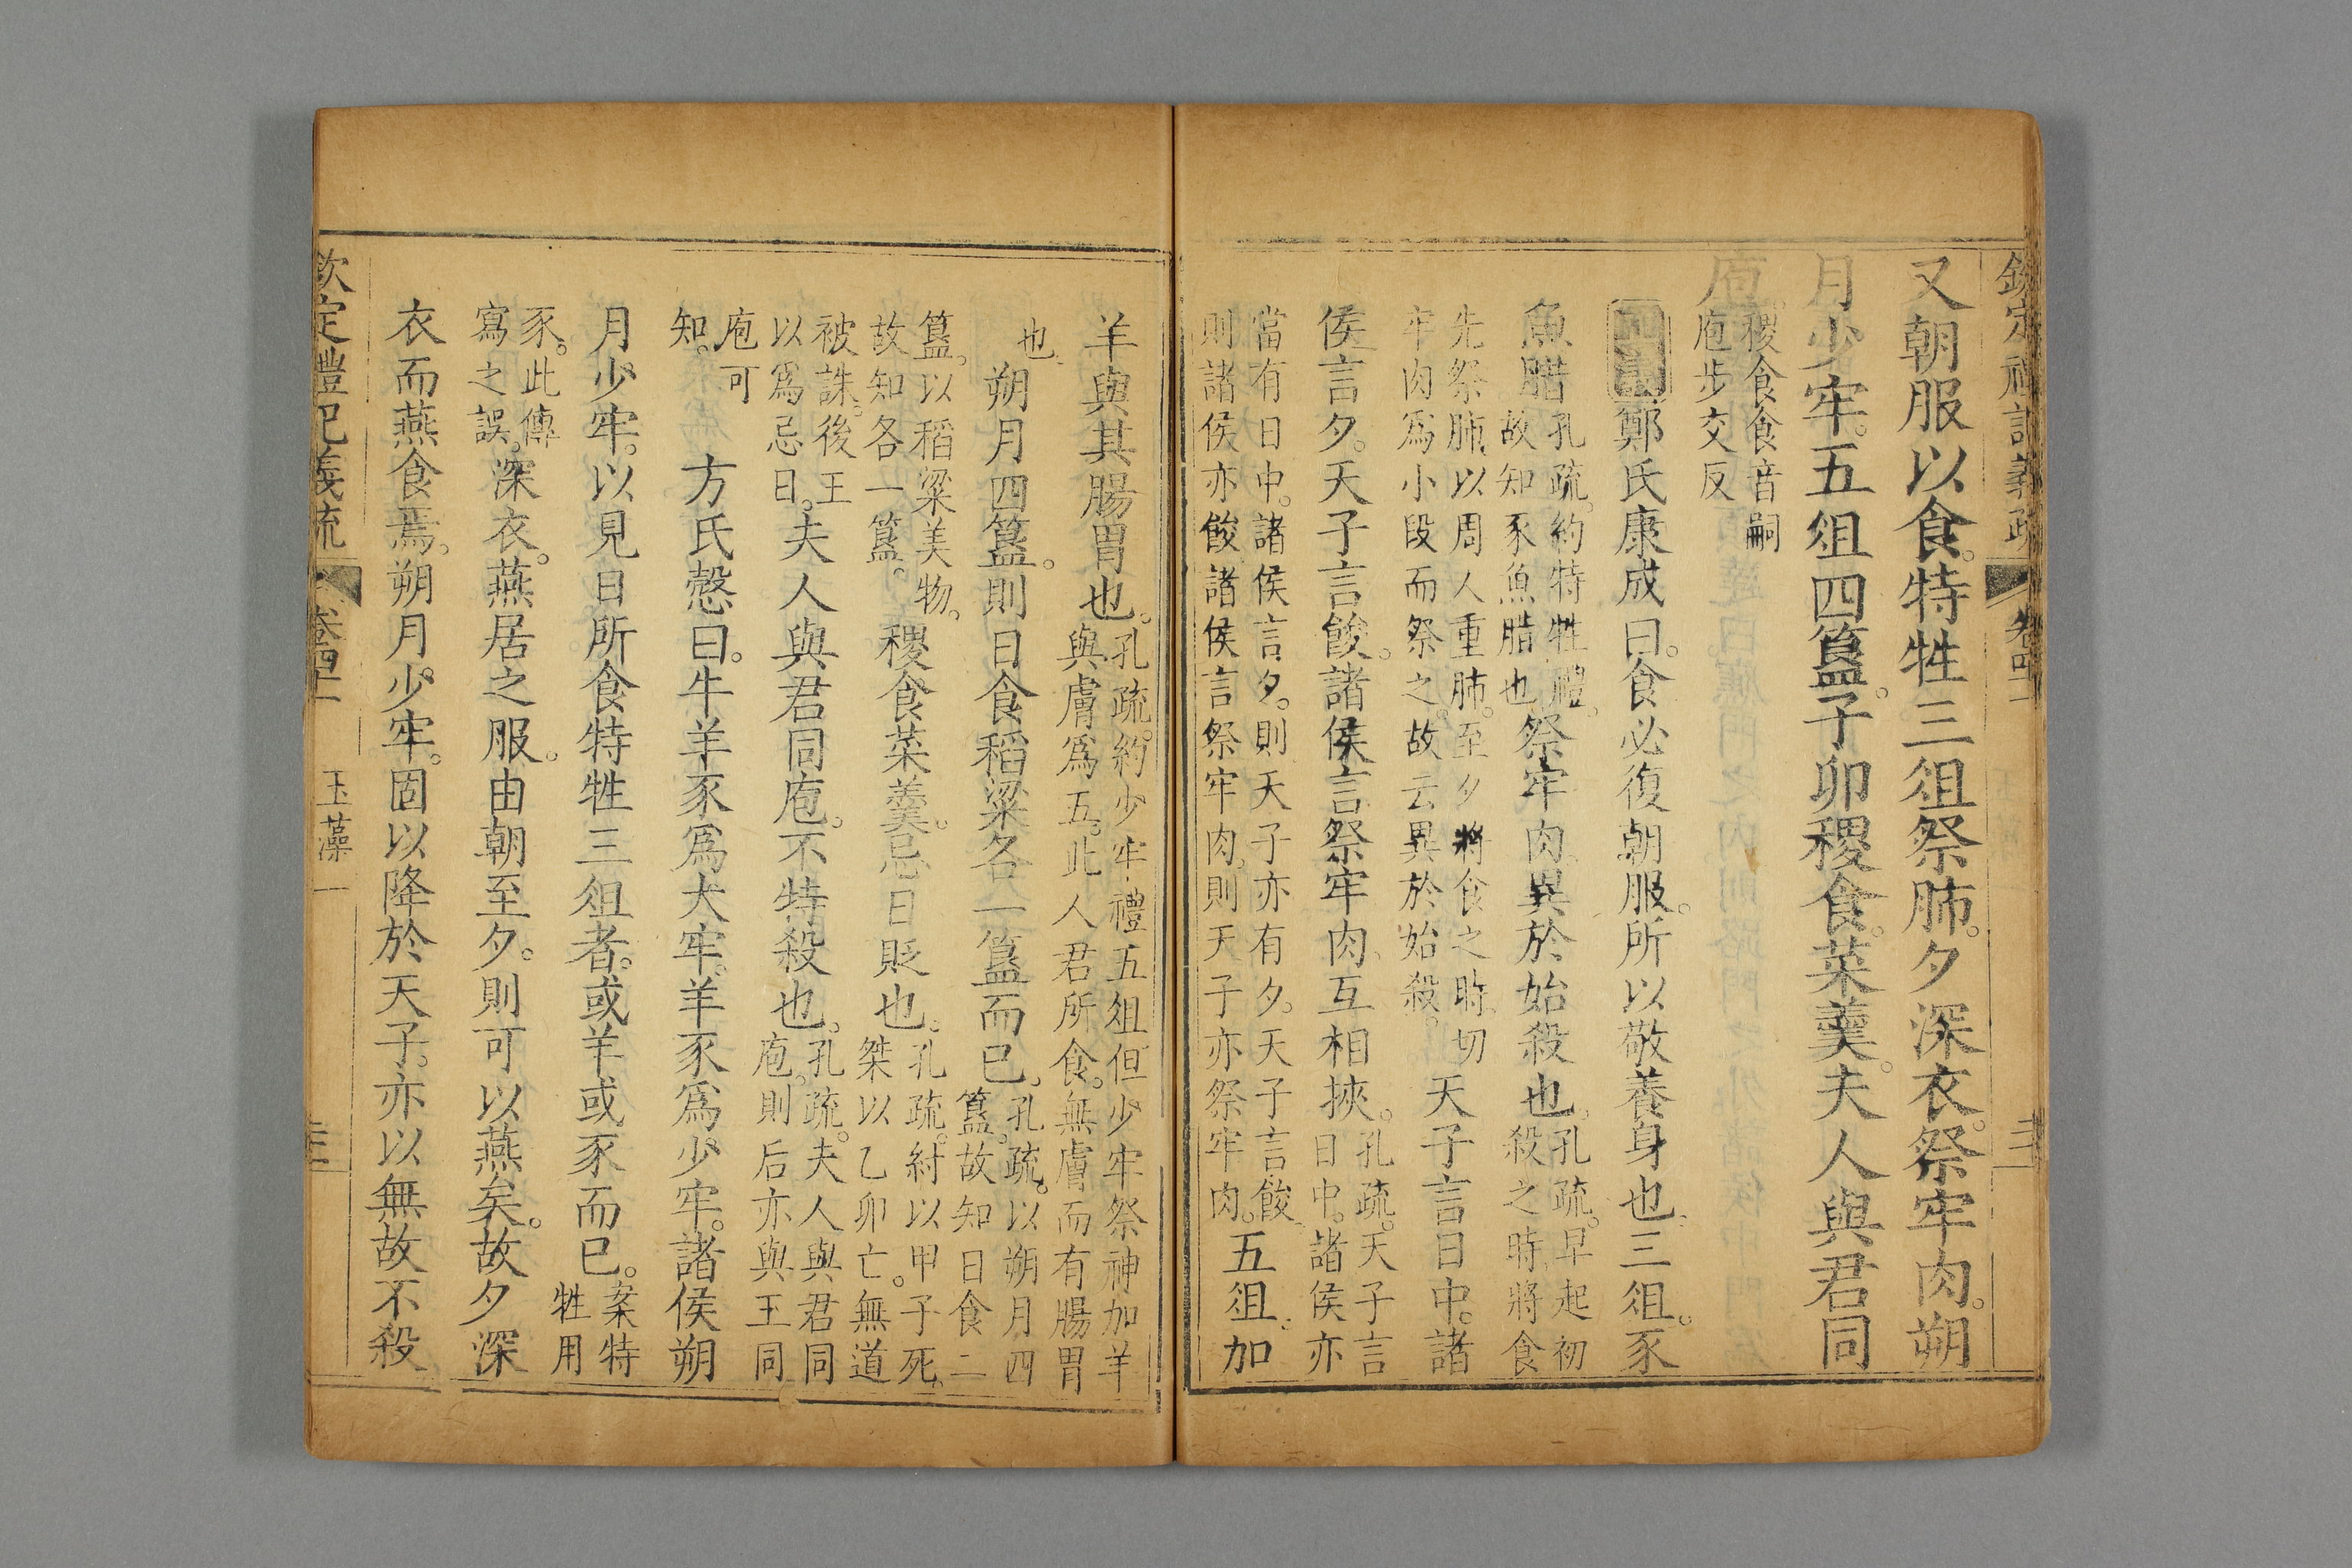 欽定禮記義疏 卷四十一
又朝服以食。特牲三俎祭肺。夕深衣。祭牢肉。朔
月少牢。五俎四簋。子卯稷食。菜羹。夫人與君同
庖。
稷食食音嗣
庖步交反
鄭氏康成曰。食必復朝服。所以敬養身也。三俎。豕
魚腊
孔疏。約特牲禮。
故知豕魚腊也。
祭牢肉。異於始殺也。
孔疏。早起初
殺之時。將食
先祭肺。以周人重肺。至夕將食之時。切
牢肉爲小段而祭之。故云異於始殺。
天子言日中。諸
侯言夕。天子言餕。諸侯言祭牢肉。互相挾。
孔疏。天子言
日中。諸侯亦
當有日中。諸侯言夕。則天子亦有夕。天子言餕。
則諸侯亦餕。諸侯言祭牢肉。則天子亦祭牢肉。
五俎。加
羊與其腸胃也。
孔疏。約少牢禮五俎但少牢祭神加羊
與膚爲五。此人君所食。無膚而有腸胃
也。
朔月四簋。則日食稻粱各一簋而已。
孔疏。以朔月四
簋。故知日食二
簋。以稻粱美物。
故知各一簋。
稷食菜羹。忌日貶也。
孔疏。紂以甲子死。
桀以乙卯亡。無道
被誅。後王
以爲忌日。
夫人與君同庖。不特殺也。
孔疏。夫人與君同
庖。則后亦與王同
庖可
知。
方氏愨曰。牛羊豕爲大牢。羊豕爲少牢。諸侯朔
月少牢。以見日所食特牲三俎者。或羊或豕而已。
案特
牲用
豕。此傳
寫之誤。
深衣。燕居之服。由朝至夕。則可以燕矣。故夕深
衣而燕食焉。朔月少牢。固以降於天子。亦以無故不殺
欽定禮記義疏 卷四十一 玉藻一